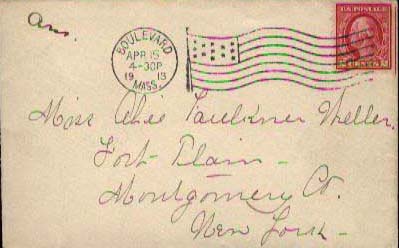 Ans.
BOULEVARD
APR 15
4-30P
1913
MASS.
U.S. POSTAGE
Miss Alie Faulkner Weller.
Fort Plain -
Montgomery Co.
New York -